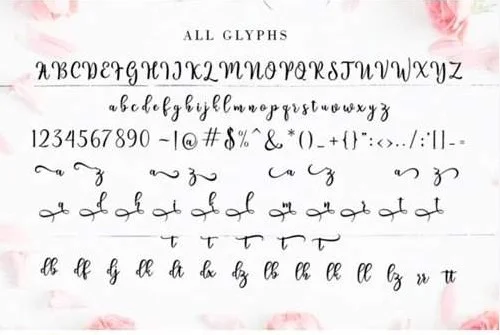 ALL GLYPHS
ABCDEFGHIJKLMNOPQRSTUVWXYZ
abcdefghijklmnopqrstuvwxyz
1234567890 ~|@#$%^&*()_+{}":<>../;'[]-=
a z a z a z a z
a d h i k l m n r t t
t t t t t
lb lf lj lk lt lx lz bb hh kk ll lz rr tt